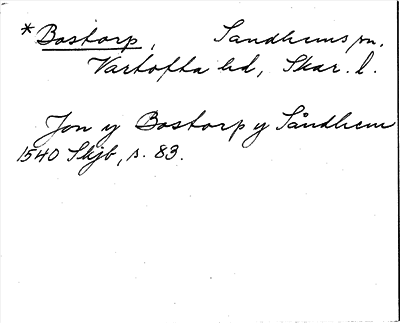 *Bostorp, Sandhems sn.
Vartofta hd, Skar. l.
Jon y Bostorp y Såndhem
1540 Skjb, s. 83.